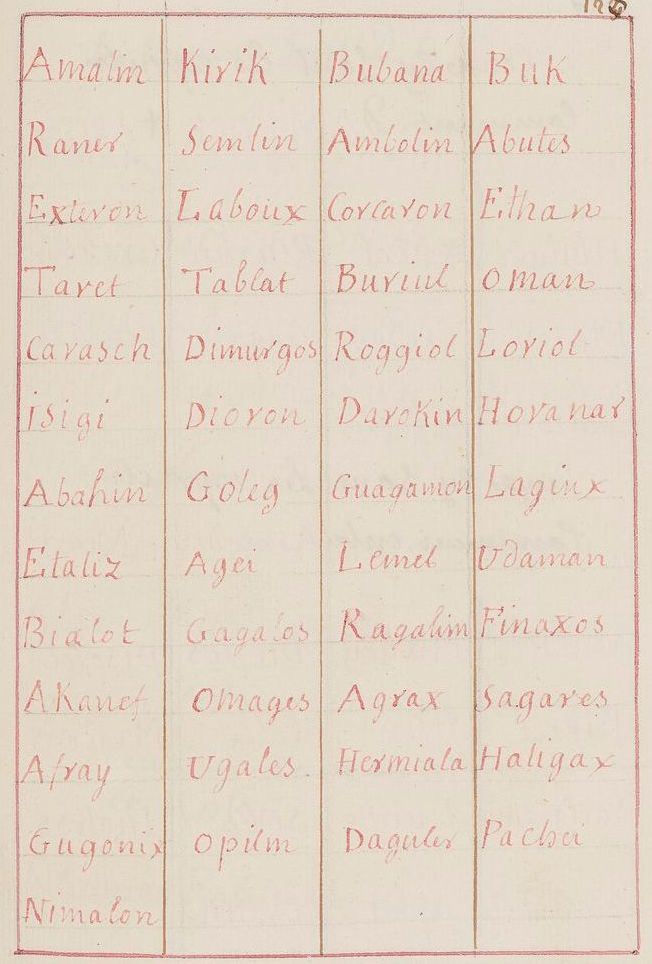 Amalin Kirik Bubana Buk
Raner Semlin Ambolin Abutes
Exteron Laboux Corcaron Ethan
Taret Tablat Buriul oman
Carasch Dimurgos Roggiol Loriol
isigi Dioron Darokin Horanar
Abahin Goleg Guagamon Laginx
Etaliz Agei Lemel Udaman
Bialot Gagalos Ragalim Finaxos
Akanef Omages Agrax Sagares
Afray Ugales Hermiala Haligax
Gugonix opilm Daguler Pachei
Nimalon